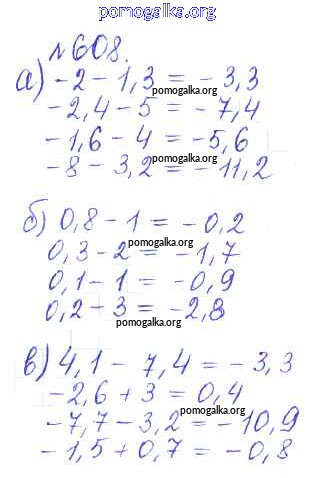 pomogalka.org
№608.
а) -2 - 1,3 = - 3,3
pomogalka.org
-2,4 - 5 = - 7,4
-1,6 - 4 = -5,6
pomogalka.org
-8 - 3,2 = - 11,2
pomogalka.org
б) 0,8 - 1 = - 0,2
pomogalka.org
0,3 - 2 = - 1,7
0,1 - 1 = -0,9
pomogalka.org
0,2 - 3 = -2,8
pomogalka.org
в) 4,1 - 7,4 = - 3,3
pomogalka.org
-2,6 + 3 = 0,4
pomogalka.org
-7,7 - 3,2 = - 10,9
-1,5 + 0,7 = -0,8
pomogalka.org